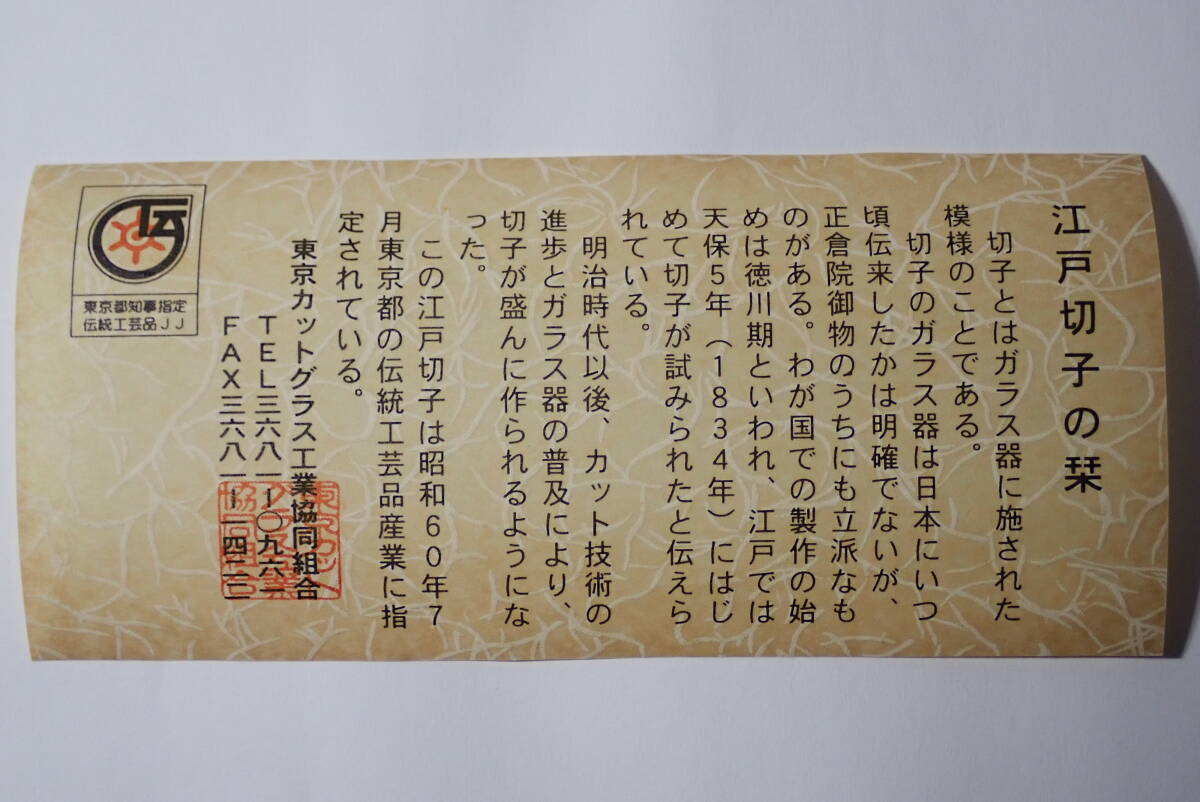 江戸切子の栞
切子とはガラス器に施された
模様のことである。
切子のガラス器は日本にいつ
頃伝来したかは明確でないが、
正倉院御物のうちにも立派なも
のがある。わが国での製作の始
めは徳川期といわれ、江戸では
天保5年（1834年）にはじ
めて切子が試みられたと伝えら
れている。
明治時代以後、カット技術の
進歩とガラス器の普及により、
切子が盛んに作られるようにな
った。
この江戸切子は昭和60年7
月東京都の伝統工芸品産業に指
定されている。
東京カットグラス工業協同組合
TEL三六八一－〇九六一
FAX三六八一－一四二二
東京都知事指定
伝統工芸品JJ